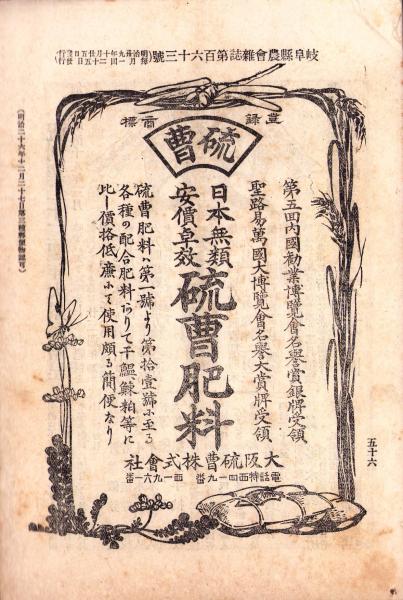 岐阜縣農會雜誌第百六十三號
(明治卅九年十月廿五日發行)
(每月一回二十五日發行)
(明治三十六年十二月二十七日第三種郵便物認可)
登錄商標
硫曹
第五回內國勸業博覽會名譽賞銀牌受領
聖路易萬國大博覽會名譽大賞牌受領
日本無類
安價卓效
硫曹肥料
硫曹肥料ハ第一號より第拾壹號に至る
各種の配合肥料ありて干鰮鯡粕等に
比し價格低廉にて使用頗る簡便なり
大阪硫曹株式會社
電話特西四一九番 西一九六一番
五十六